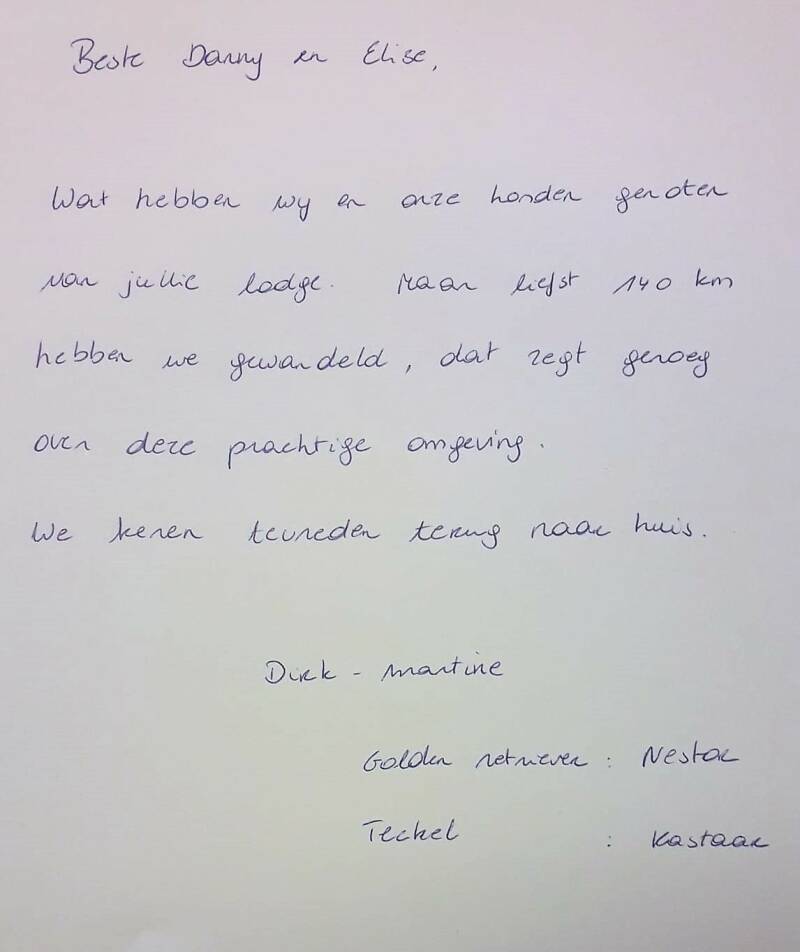 Beste Danny en Elise,
Wat hebben wy en onze honden genoten
van jullie lodge. Maar liefst 140 km
hebben we gewandeld, dat zegt genoeg
over deze prachtige omgeving.
We keren tevreden terug naar huis.
Dirk - Martine
Golden retriever : Nestor
Teckel : Kastaar